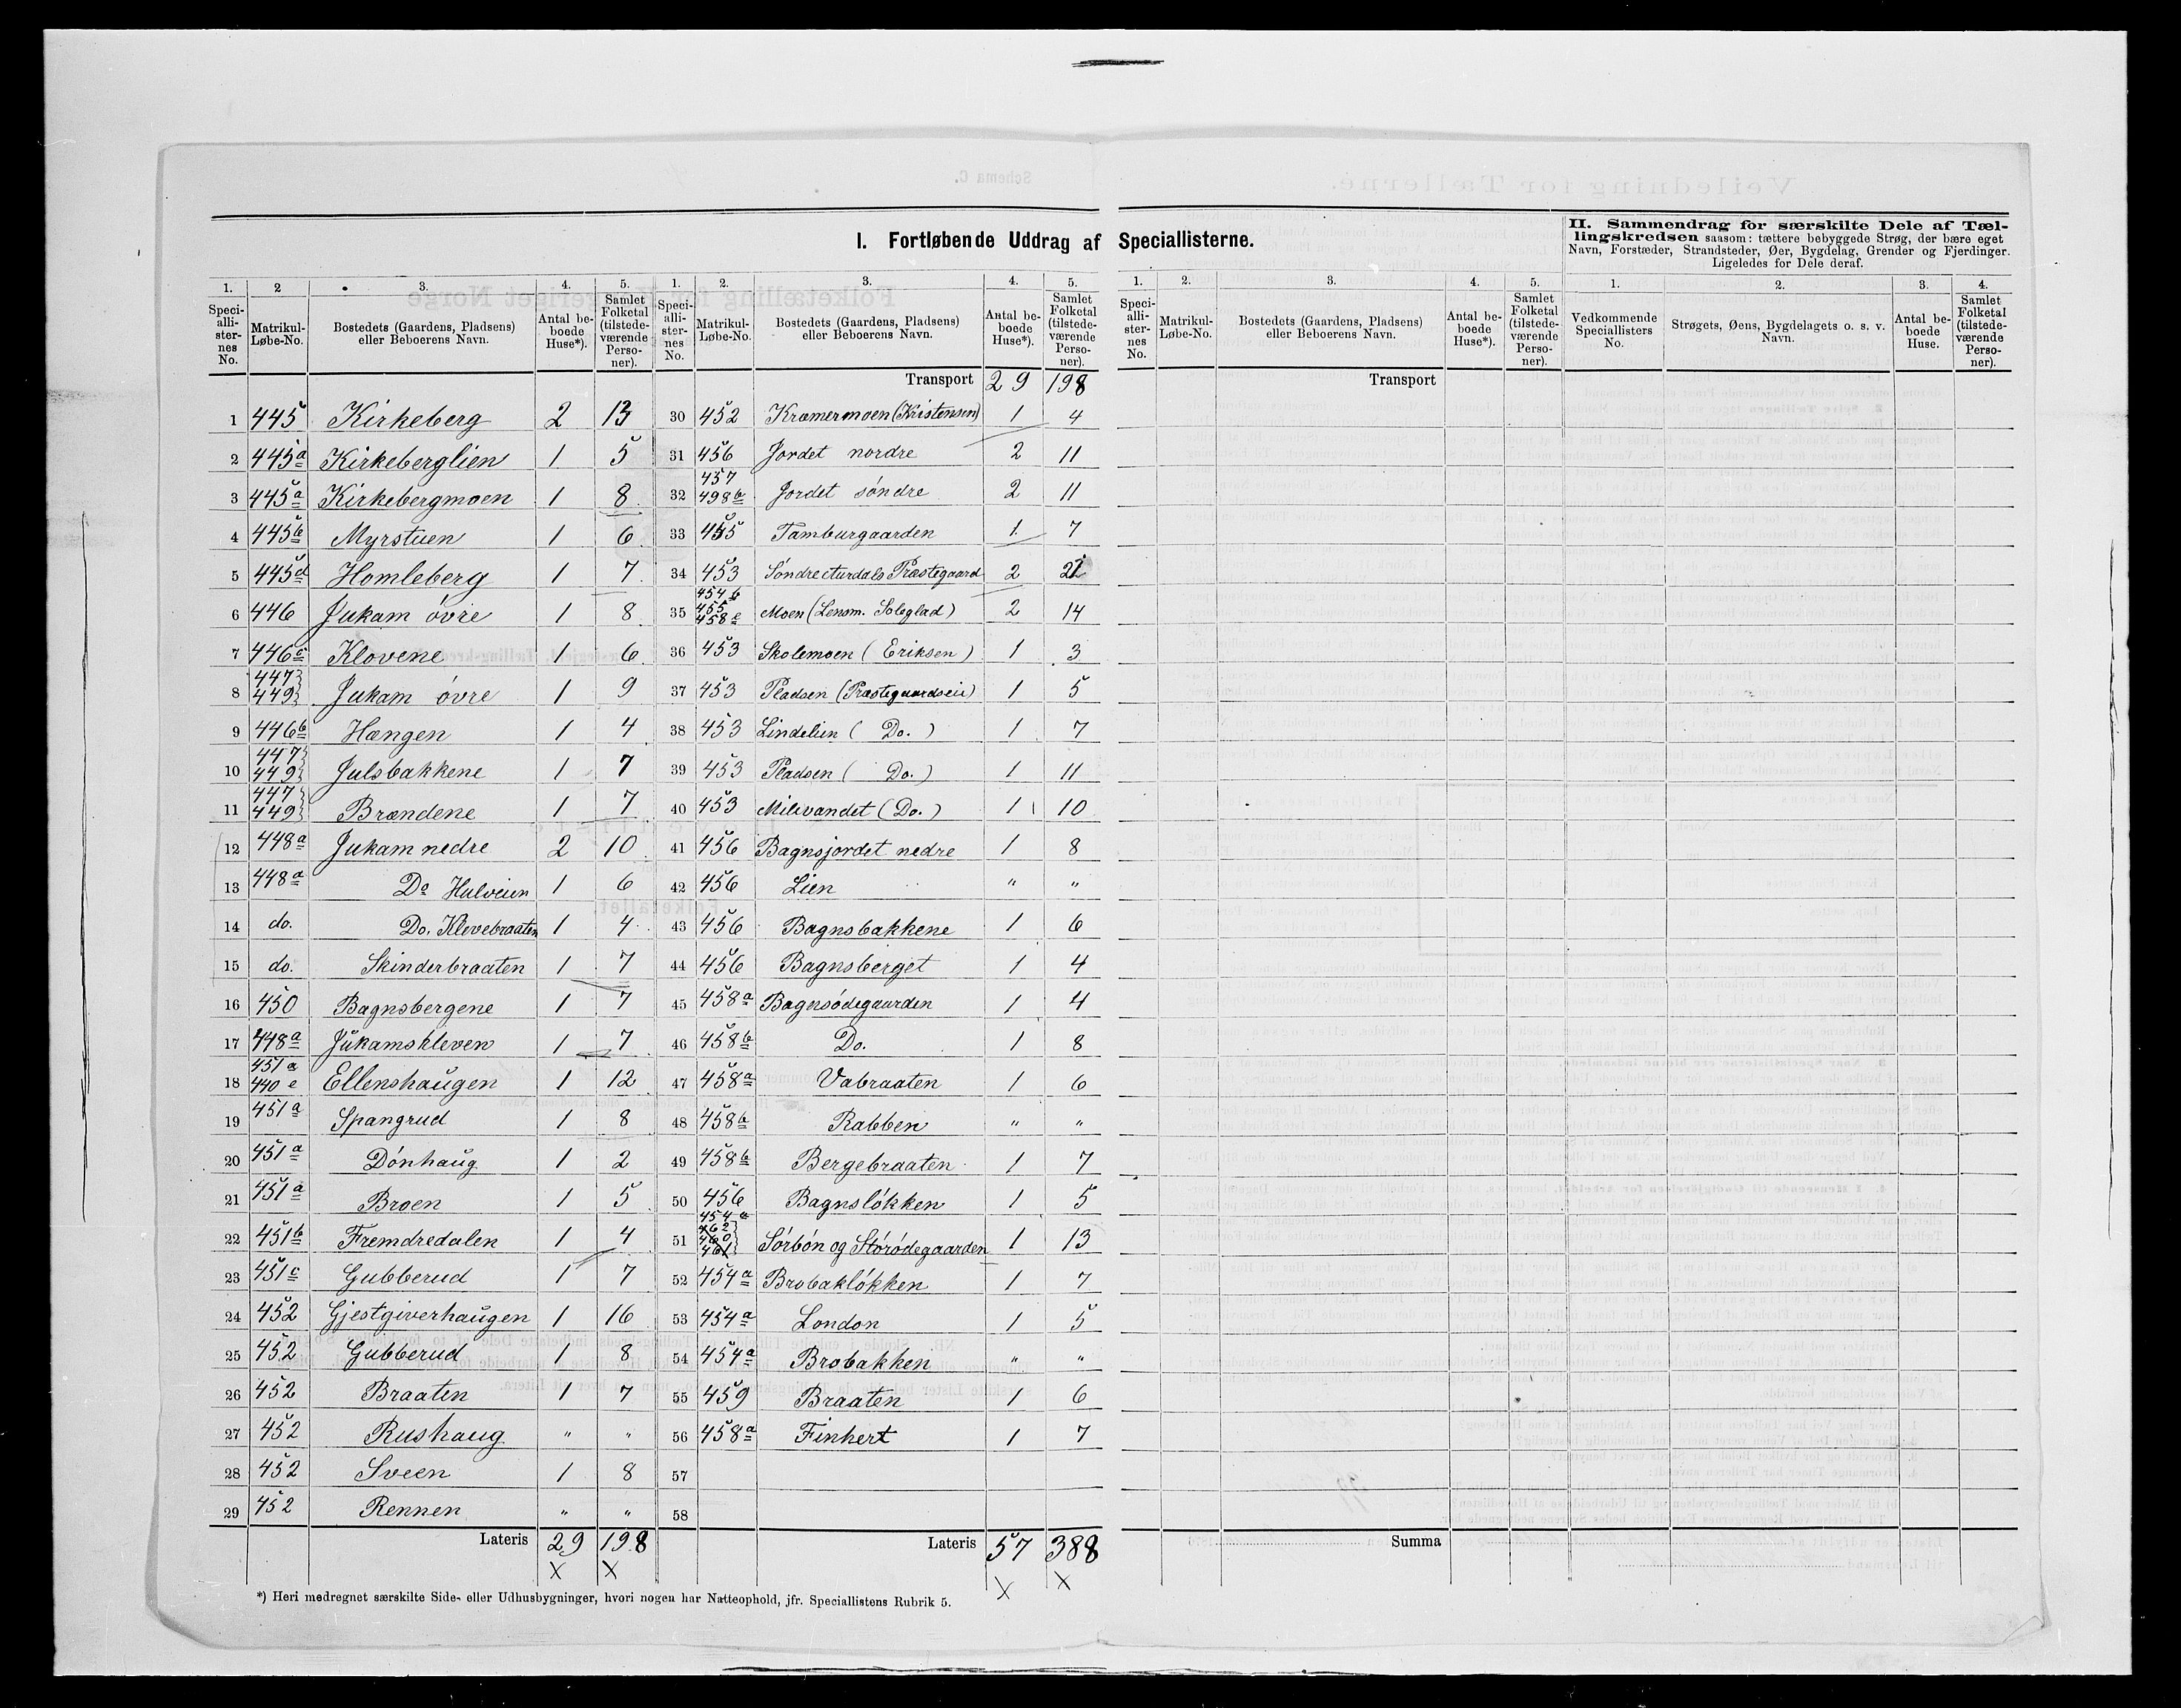 I. Fortløbende Uddrag af Speciallisterne.
II. Sammendrag for særskilte Dele af Tæl-
lingskredsen saasom: tættere bebyggede Strøg, der bære eget
Navn, Forstæder, Strandsteder, Øer, Bygdelag, Grender og Fjerdinger.
Ligeledes for Dele deraf.
1. 2 3. 4. 5. 1. 2. 3. 4. 5. 1. 2. 3. 4. 5. 1. 2. 3. 4.
Speciallisternes No. Matrikul-Løbe-No. Bostedets (Gaardens, Pladsens) eller Beboerens Navn. Antal beboede Huse*). Samlet Folketal (tilstedeværende Personer).
Speciallisternes No. Matrikul-Løbe-No. Bostedets (Gaardens, Pladsens) eller Beboerens Navn. Antal beboede Huse*). Samlet Folketal (tilstedeværende Personer).
Speciallisternes No. Matrikul-Løbe-No. Bostedets (Gaardens, Pladsens) eller Beboerens Navn. Antal beboede Huse*). Samlet Folketal (tilstedeværende Personer).
Vedkommende Speciallisters No. Strøgets, Øens, Bygdelagets o. s. v. Navn. Antal beboede Huse. Samlet Folketal (tilstedeværende Personer).
1 445 Kirkeberg 2 13
2 445a Kirkeberglien 1 5
3 445a Kirkebergmoen 1 8
4 445b Myrstuen 1 6
5 445d Homleberg 1 7
6 446 Jukam øvre 1 8
7 446c Klovene 1 6
8 447 449 Jukam øvre 1 9
9 446b Hængen 1 4
10 447 449 Julsbakkene 1 7
11 447 449 Brændene 1 7
12 448a Jukam nedre 2 10
13 448a Do Hulveien 1 6
14 do. Do. Klevebraaten 1 4
15 do. Skinderbraaten 1 7
16 450 Bagnsbergene 1 7
17 448a Jukamskleven 1 7
18 451a 440e Ellenshaugen 1 12
19 451a Spangrud 1 8
20 451a Dønhaug 1 2
21 451a Broen 1 5
22 451b Fremdredalen 1 4
23 451c Gubberud 1 7
24 452 Gjestgiverhaugen 1 16
25 452 Gubberud 1 8
26 452 Braaten 1 7
27 452 Rushaug " "
28 452 Sveen 1 8
29 452 Rennen " "
Lateris 29 198
X X
Transport 29 198
30 452 Kræmermoen (Kristensen) 1 4
31 456 Jordet nordre 2 11
32 457 498b Jordet søndre 2 11
33 455 Tamburgaarden 1 7
34 453 Søndre Aurdals Præstegaard 2
35 454b 455 458c Moen (Lensm. Soleglad) 2 14
36 453 Skolemoen (Eriksen) 1 3
37 453 Pladsen (Præstegaardseie) 1 5
38 453 Lindelien (Do.) 1 7
39 453 Pladsen (Do.) 1 11
40 453 Milevandet (Do.) 1 10
41 456 Bagnsjordet nedre 1 8
42 456 Lien " "
43 456 Bagnsbakkene 1 6
44 456 Bagnsberget 1 4
45 458a Bagnsødegaarden 1 4
46 458b Do. 1 8
47 458a Vabraaten 1 6
48 458b Rabben " "
49 458b Bergebraaten 1 7
50 456 Bagnsløkken 1 5
51 454a 462 460 461 Sørbøn og Storødegaarden 1 13
52 454a Brobakløkken 1 7
53 454a London 1 5
54 454a Brobakken " "
55 459 Braaten 1 6
56 458a Finhert 1 7
57
58
Lateris 57 388
X X
Transport
Summa
*) Heri medregnet særskilte Side- eller Udhusbygninger, hvori nogen har Natteophold, jfr. Speciallistens Rubrik 5.